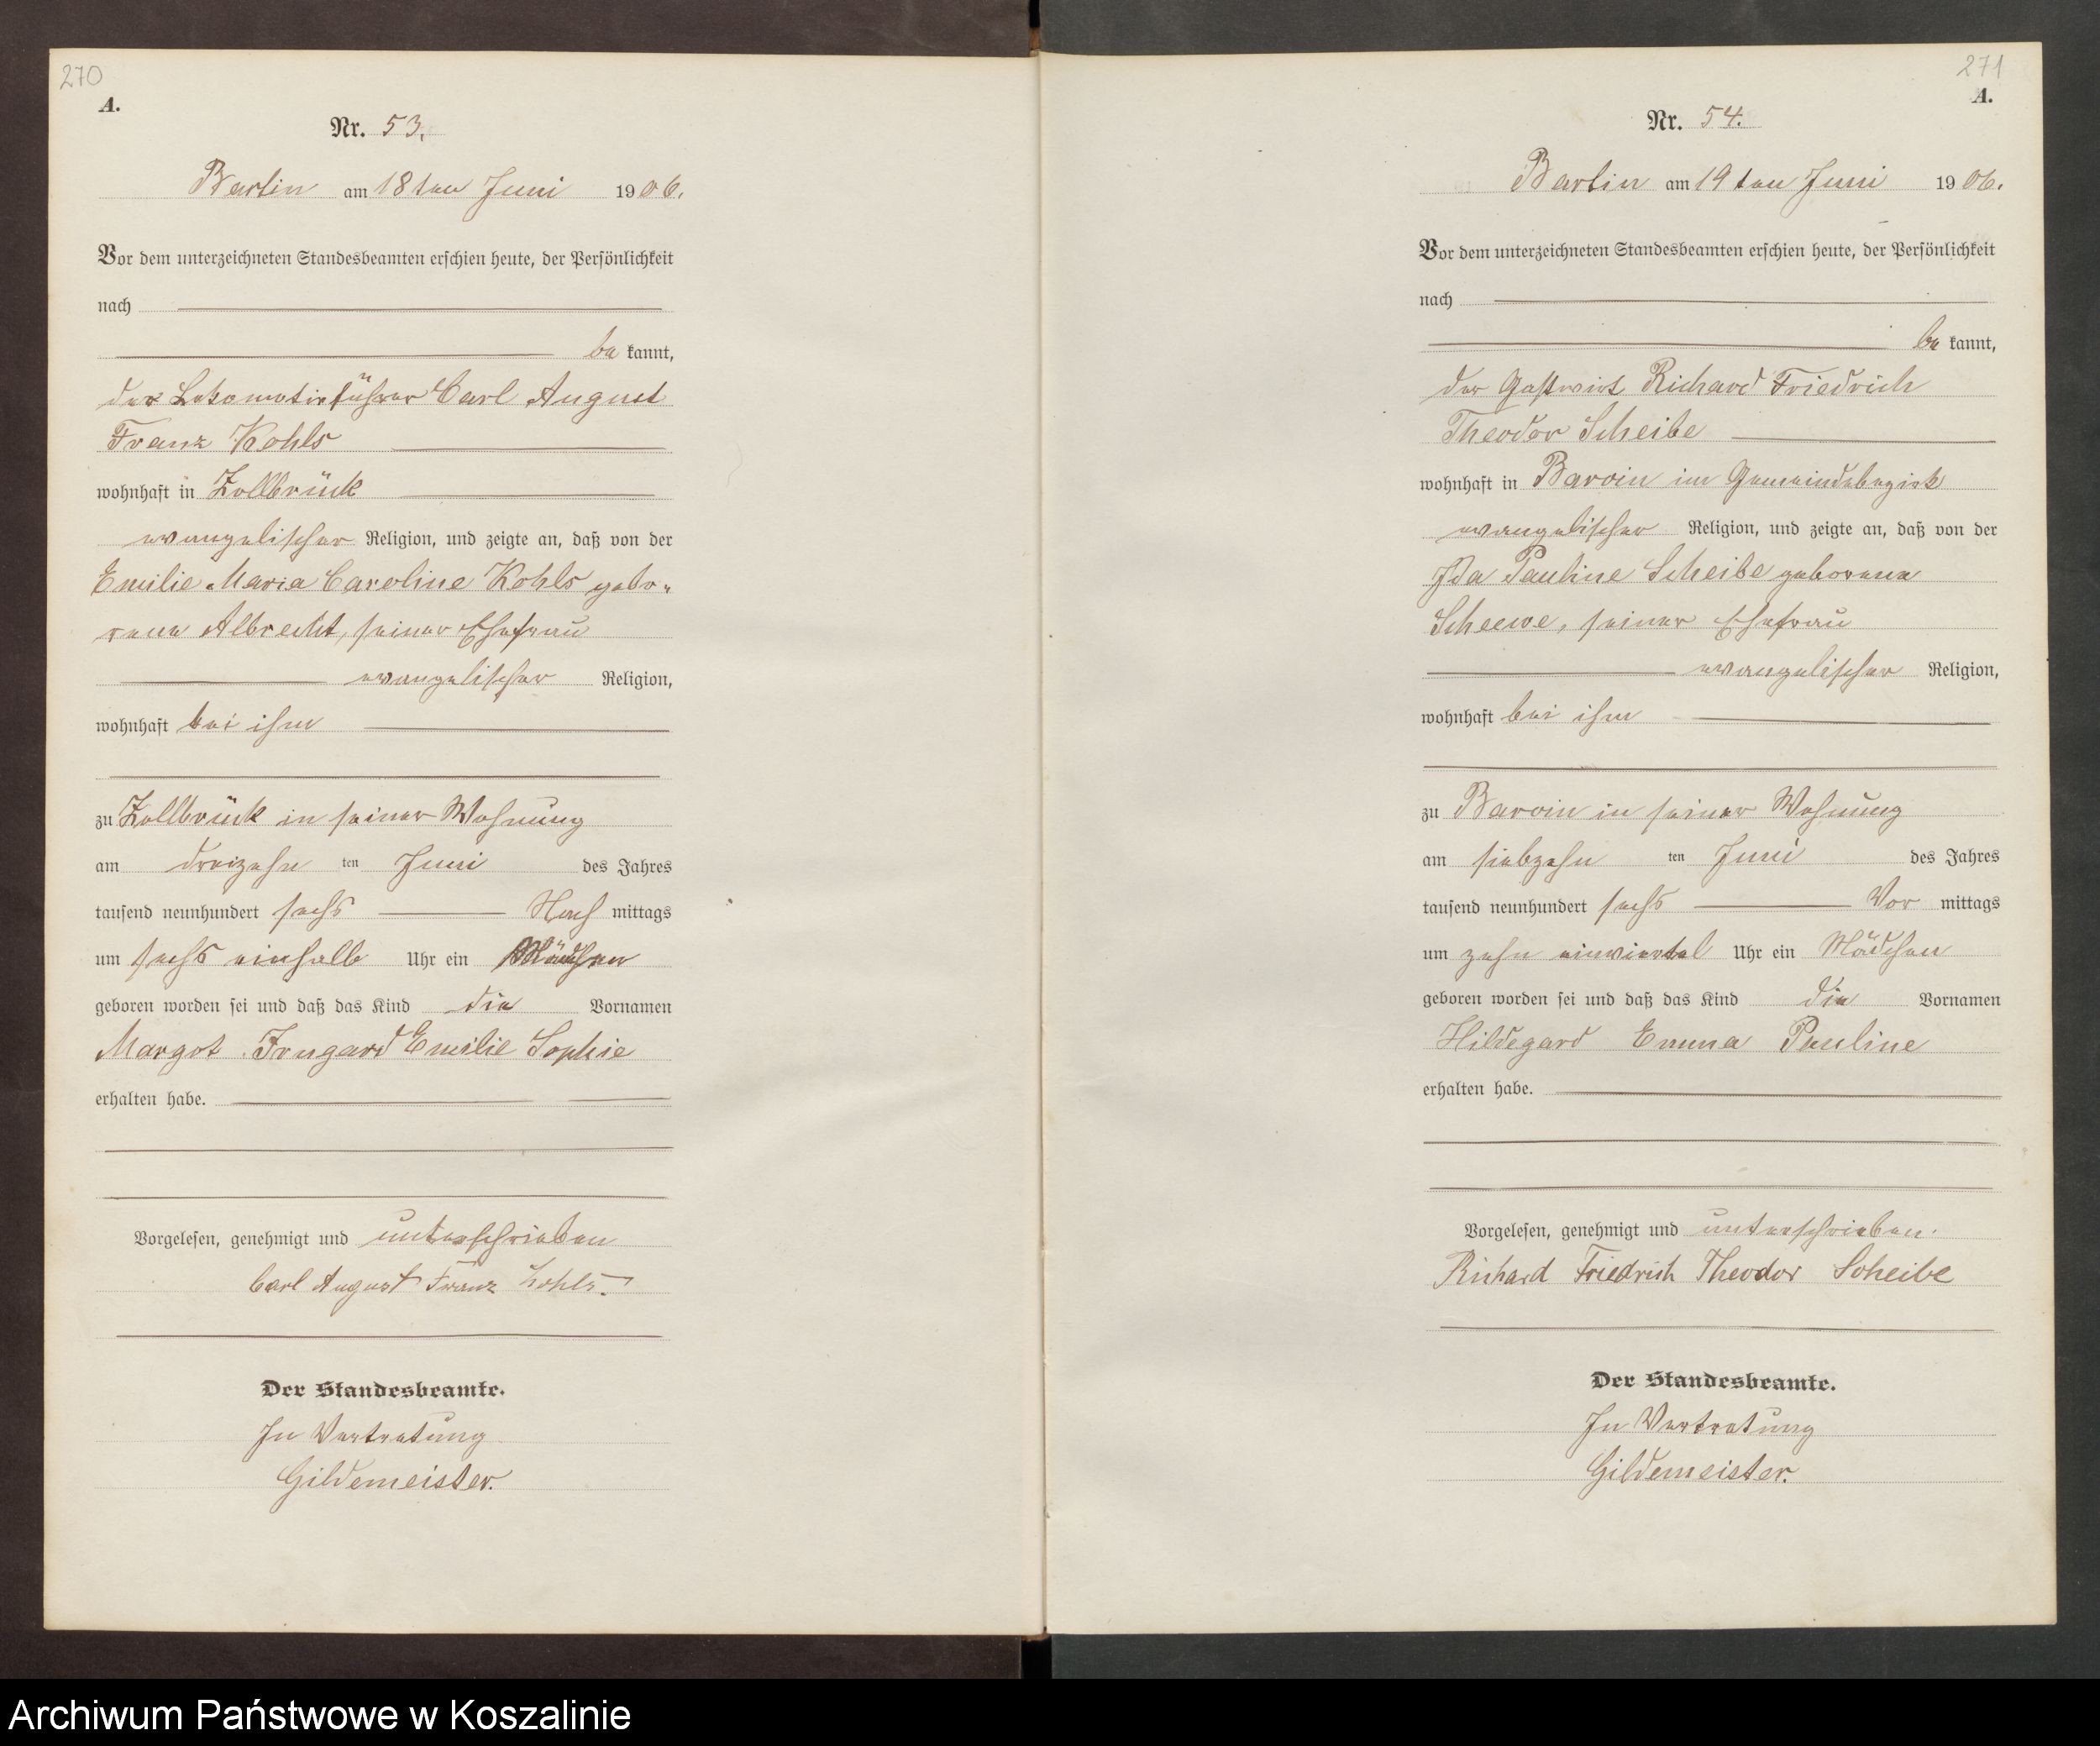 270
A.
Nr. 53.
Bartin am 18ten Juni 1906.
Vor dem unterzeichneten Standesbeamten erschien heute, der Persönlichkeit
nach
be kannt,
der Lokomotivführer Carl August
Franz Kohls
wohnhaft in Zollbrück
evangelischer Religion, und zeigte an, daß von der
Emilie Maria Caroline Kohls gebo-
rene Albrecht, seiner Ehefrau
evangelischer Religion,
wohnhaft bei ihm
zu Zollbrück in seiner Wohnung
am dreizehn ten Juni des Jahres
tausend neunhundert sechs Nach mittags
um sechs einhalb Uhr ein Mädchen
geboren worden sei und daß das Kind die Vornamen
Margot Irngard Emilie Sophie
erhalten habe.
Vorgelesen, genehmigt und unterschrieben
Carl August Franz Kohls.
Der Standesbeamte.
In Vertretung
Gildemeister.
271
A.
Nr. 54.
Bartin am 19ten Juni 1906.
Vor dem unterzeichneten Standesbeamten erschien heute, der Persönlichkeit
nach
be kannt,
der Gastwirt Richard Friedrich
Theodor Scheibe
wohnhaft in Barvin im Gemeindebezirk
evangelischer Religion, und zeigte an, daß von der
Ida Pauline Scheibe geborene
Scheewe, seiner Ehefrau
evangelischer Religion,
wohnhaft bei ihm
zu Barvin in seiner Wohnung
am siebzehn ten Juni des Jahres
tausend neunhundert sechs Vor mittags
um zehn einviertel Uhr ein Mädchen
geboren worden sei und daß das Kind die Vornamen
Hildegard Emma Pauline
erhalten habe.
Vorgelesen, genehmigt und unterschrieben.
Richard Friedrich Theodor Scheibe
Der Standesbeamte.
In Vertretung
Gildemeister.
Archiwum Państwowe w Koszalinie